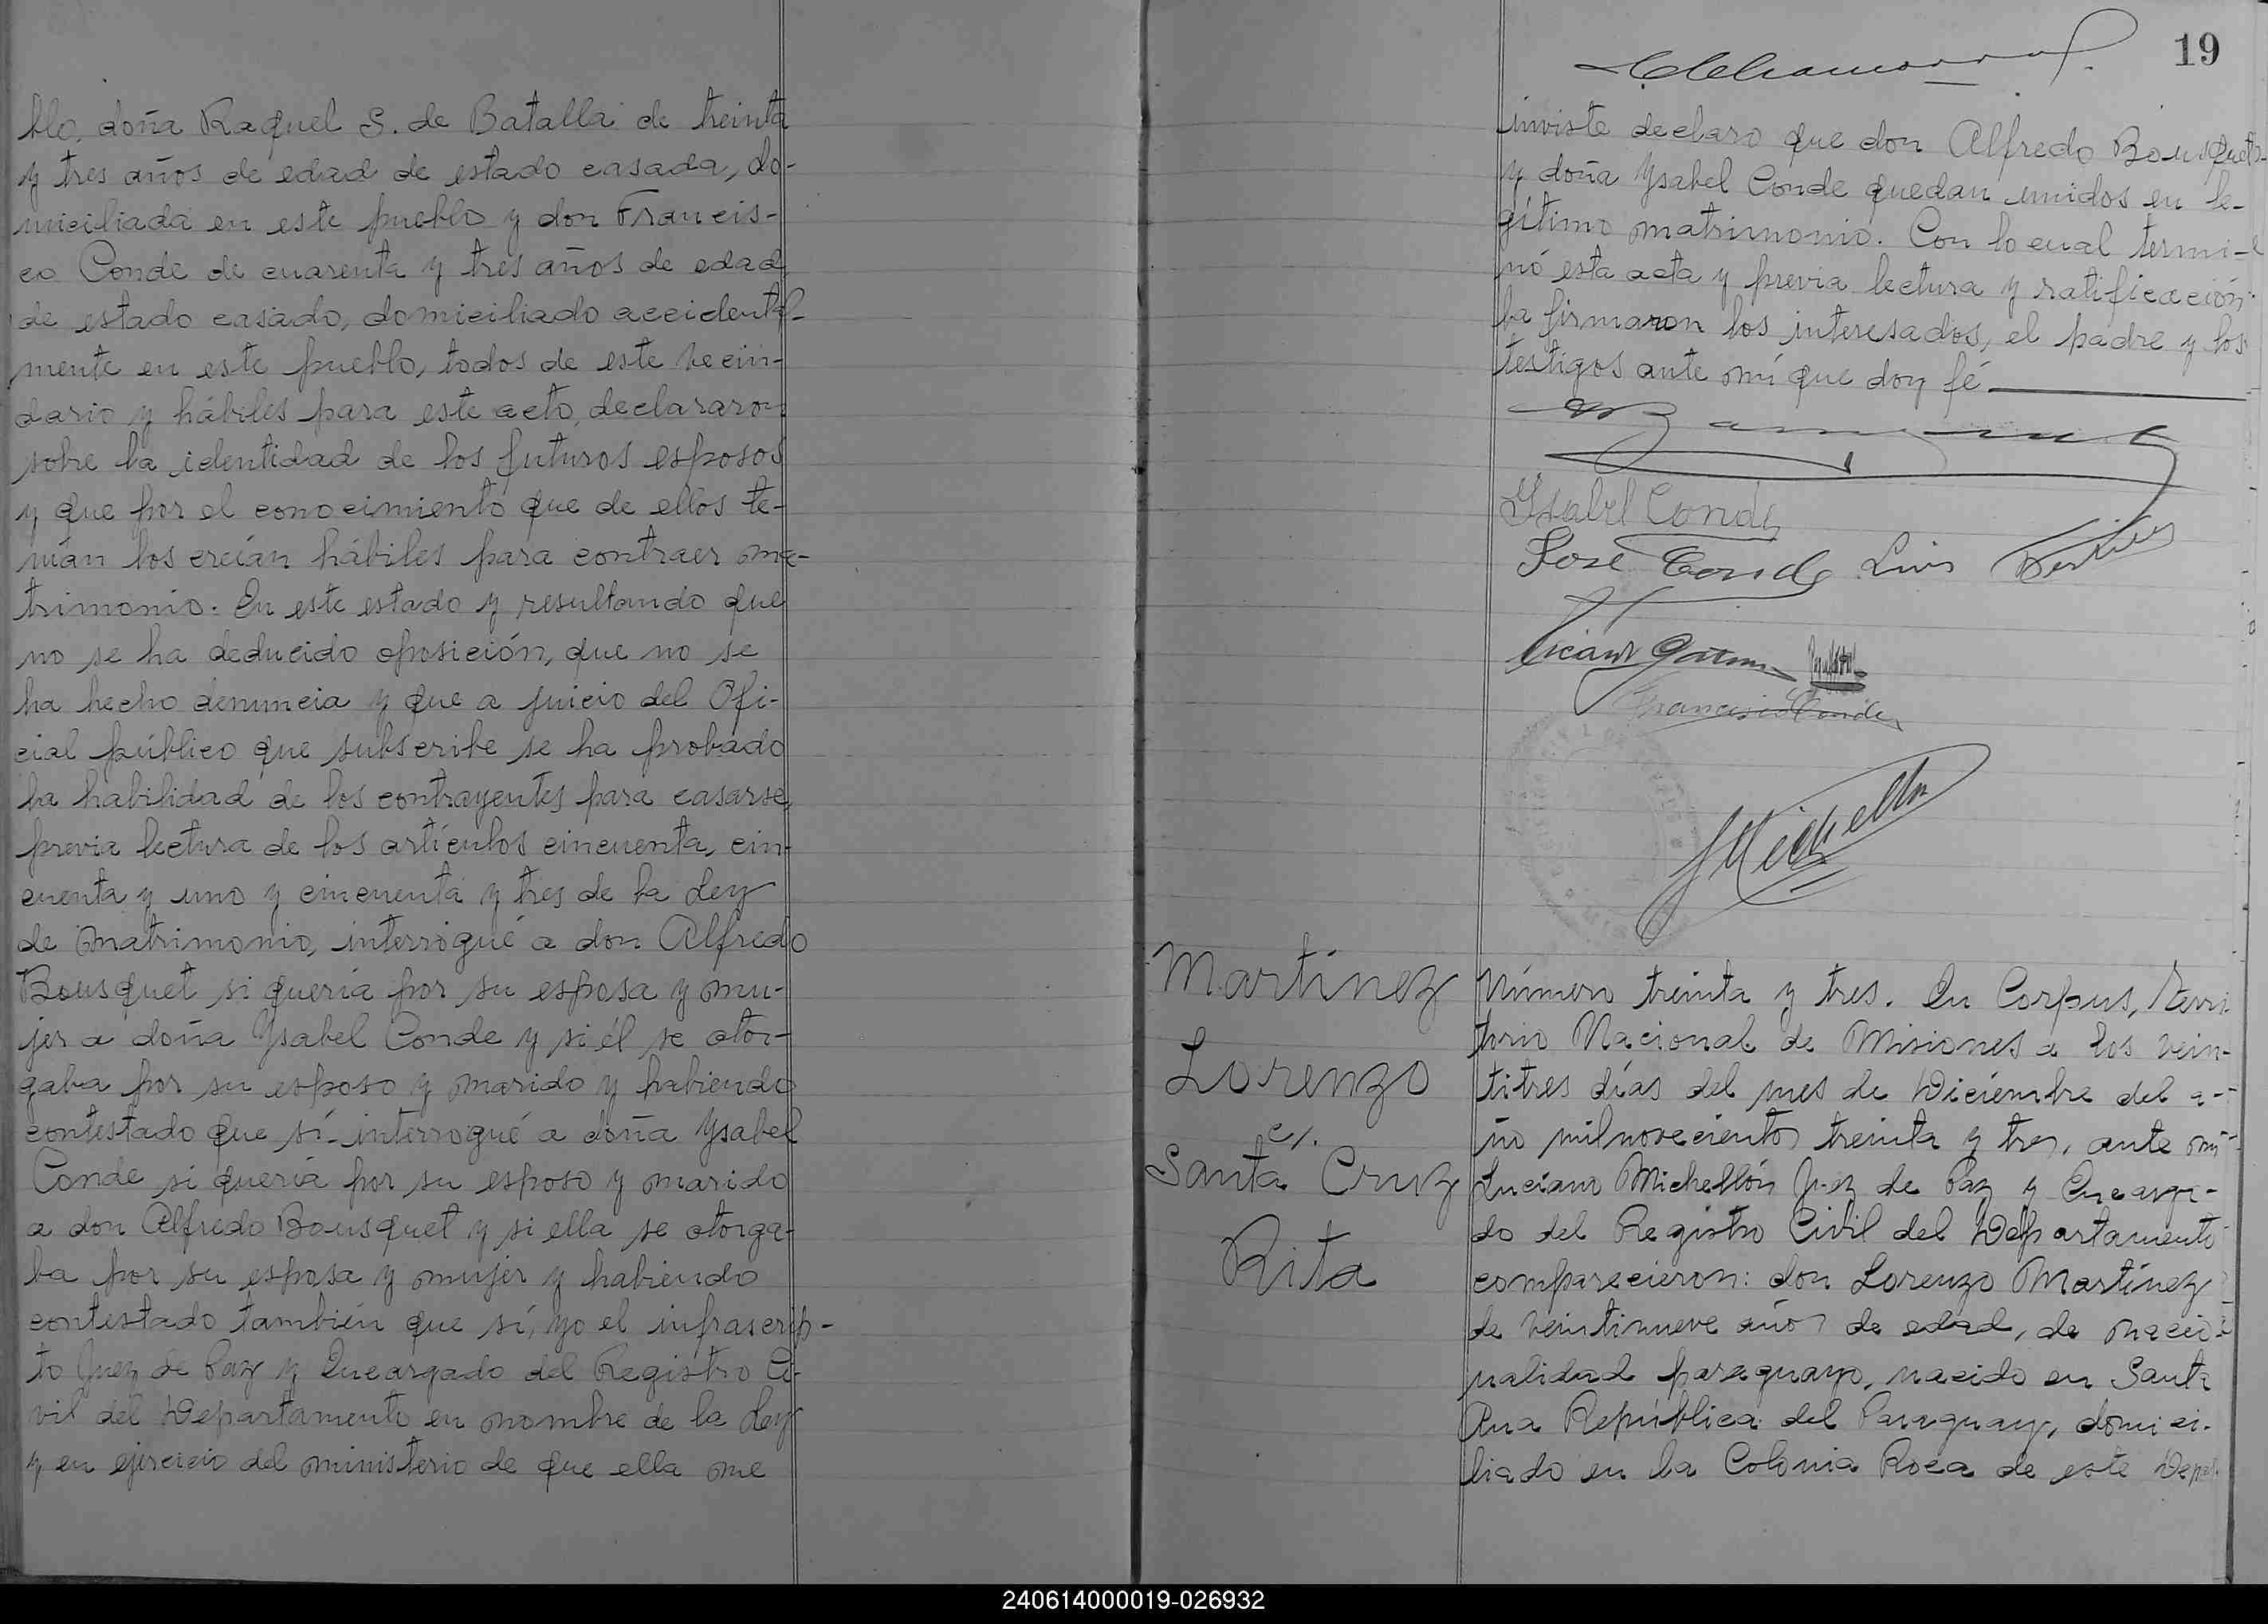 blo, doña Raquel S. de Batalla de treinta
y tres años de edad de estado casada, do-
miciliada en este pueblo y don Francis-
co Conde de cuarenta y tres años de edad
de estado casado, domiciliado accidental-
mente en este pueblo, todos de este vecin-
dario y hábiles para este acto, declararon
sobre la identidad de los futuros esposos
y que por el conocimiento que de ellos te-
nían los creían hábiles para contraer ma-
trimonio. En este estado y resultando que
no se ha deducido oposición, que no se
ha hecho denuncia y que a juicio del Ofi-
cial público que subscribe se ha probado
la habilidad de los contrayentes para casarse,
previa lectura de los artículos cincuenta, cin-
cuenta y uno y cincuenta y tres de la Ley
de Matrimonio, interrogué a don Alfredo
Bousquet si quería por su esposa y mu-
jer a doña Ysabel Conde y si él se otor-
gaba por su esposo y marido y habiendo
contestado que sí interrogué a doña Ysabel
Conde si quería por su esposo y marido
a don Alfredo Bousquet y si ella se otorga-
ba por su esposa y mujer y habiendo
contestado también que sí, yo el infrascrip-
to Juez de Paz y Encargado del Registro Ci-
vil del Departamento en nombre de la Ley
y en ejercicio del ministerio de que ella me
19
inviste declaro que don Alfredo Bousquet
y doña Ysabel Conde quedan unidos en le-
gítimo matrimonio. Con lo cual termi-
nó esta acta y previa lectura y ratificación
la firmaron los interesados, el padre y los
testigos ante mí que doy fé
Ysabel Conde
José Conde Luis
Francisco Conde
Martínez
Lorenzo
c/.
Santa Cruz
Rita
Número treinta y tres. En Corpus, Terri
torio Nacional de Misiones a los vein-
titres días del mes de Diciembre del a-
ño mil novecientos treinta y tres, ante mí
Luciano Michellón Juez de Paz y Encarga-
do del Registro Civil del Departamento
comparecieron: don Lorenzo Martínez
de veintinueve años de edad, de nacio-
nalidad paraguayo, nacido en Santa
Ana República del Paraguay, domici-
liado en la Colonia Roca de este Depar
240614000019-026932